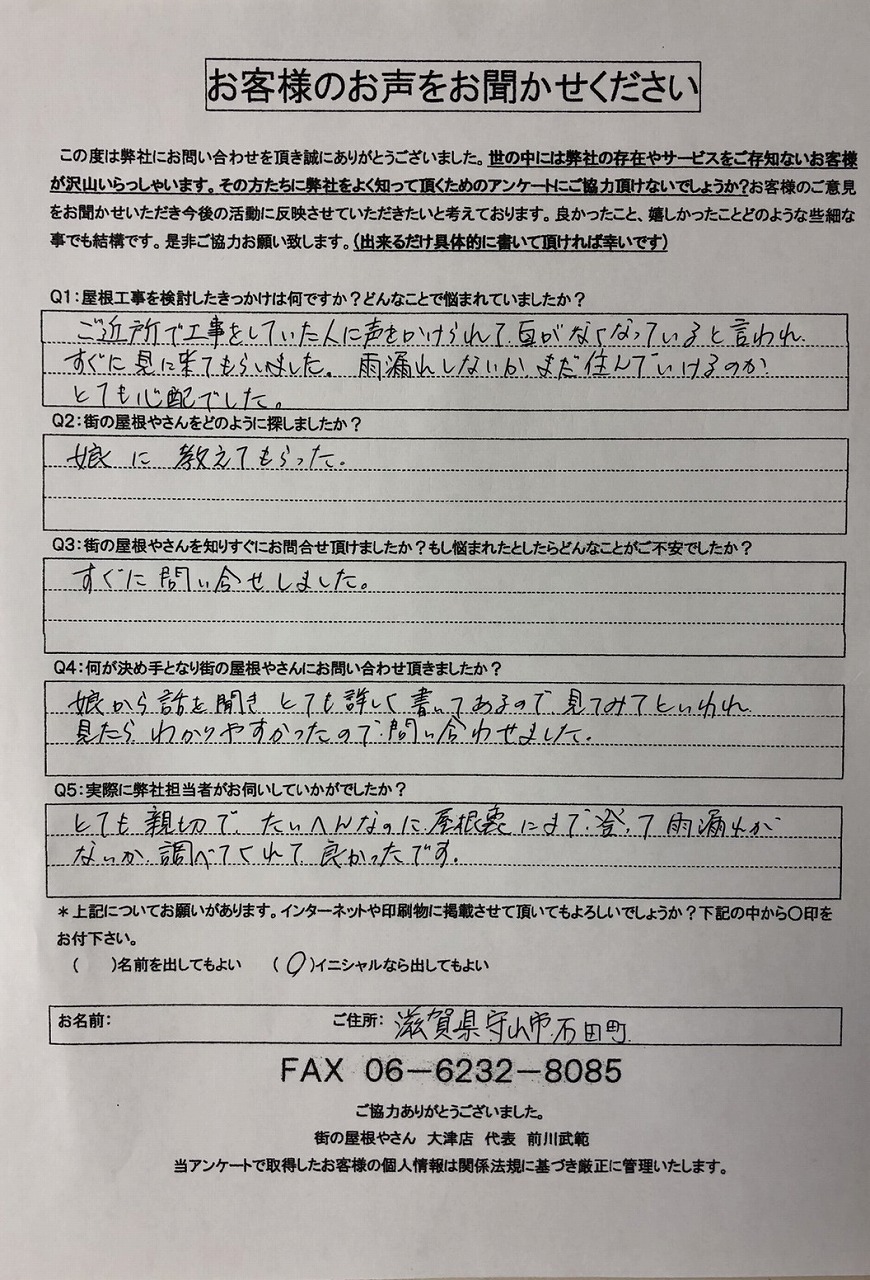 お客様のお声をお聞かせください
この度は弊社にお問い合わせを頂き誠にありがとうございました。世の中には弊社の存在やサービスをご存知ないお客様
が沢山いらっしゃいます。その方たちに弊社をよく知って頂くためのアンケートにご協力頂けないでしょうか?お客様のご意見
をお聞かせいただき今後の活動に反映させていただきたいと考えております。良かったこと、嬉しかったことどのような些細な
事でも結構です。是非ご協力お願い致します。(出来るだけ具体的に書いて頂ければ幸いです)
Q1:屋根工事を検討したきっかけは何ですか?どんなことで悩まれていましたか?
ご近所で工事をしていた人に声をかけられて、瓦がなくなっていると言われ、
すぐに見に来てもらいました。雨漏れしないか、まだ住んでいけるのか
とても心配でした。
Q2:街の屋根やさんをどのように探しましたか?
娘に教えてもらった。
Q3:街の屋根やさんを知りすぐにお問合せ頂けましたか?もし悩まれたとしたらどんなことがご不安でしたか?
すぐに問い合せしました。
Q4:何が決め手となり街の屋根やさんにお問い合わせ頂きましたか?
娘から話を聞きとても詳しく書いてあるので、見てみてといわれ
見たら、わかりやすかったので、問い合わせました。
Q5:実際に弊社担当者がお伺いしていかがでしたか?
とても親切で、たいへんなのに、屋根裏にまで、登って雨漏れが
ないか、調べてくれて、良かったです。
*上記についてお願いがあります。インターネットや印刷物に掲載させて頂いてもよろしいでしょうか?下記の中から〇印を
お付下さい。
( )名前を出してもよい (〇)イニシャルなら出してもよい
お名前: ご住所: 滋賀県守山市石田町
FAX 06-6232-8085
ご協力ありがとうございました。
街の屋根やさん 大津店 代表 前川武範
当アンケートで取得したお客様の個人情報は関係法規に基づき厳正に管理いたします。